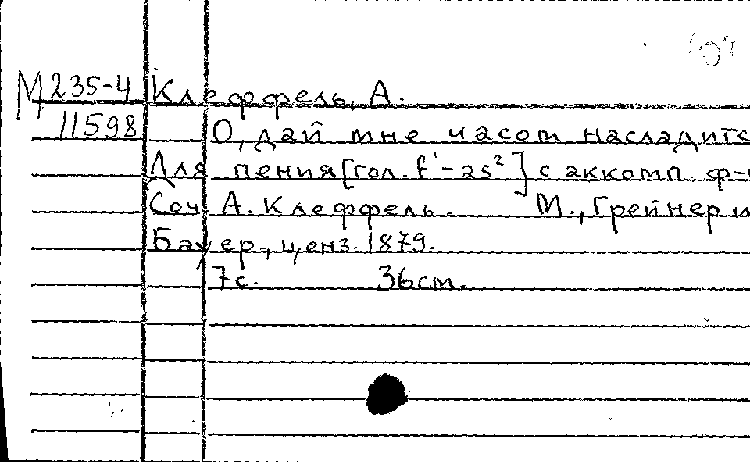 М 235-4 Клеффель, А.
11598 О, дай мне часом насладитс
Для пения [гол. f'-as²] с аккомп. ф-
Соч. А. Клеффель. М., Грейнер и
Бауер, ценз. 1879.
7с. 36см.